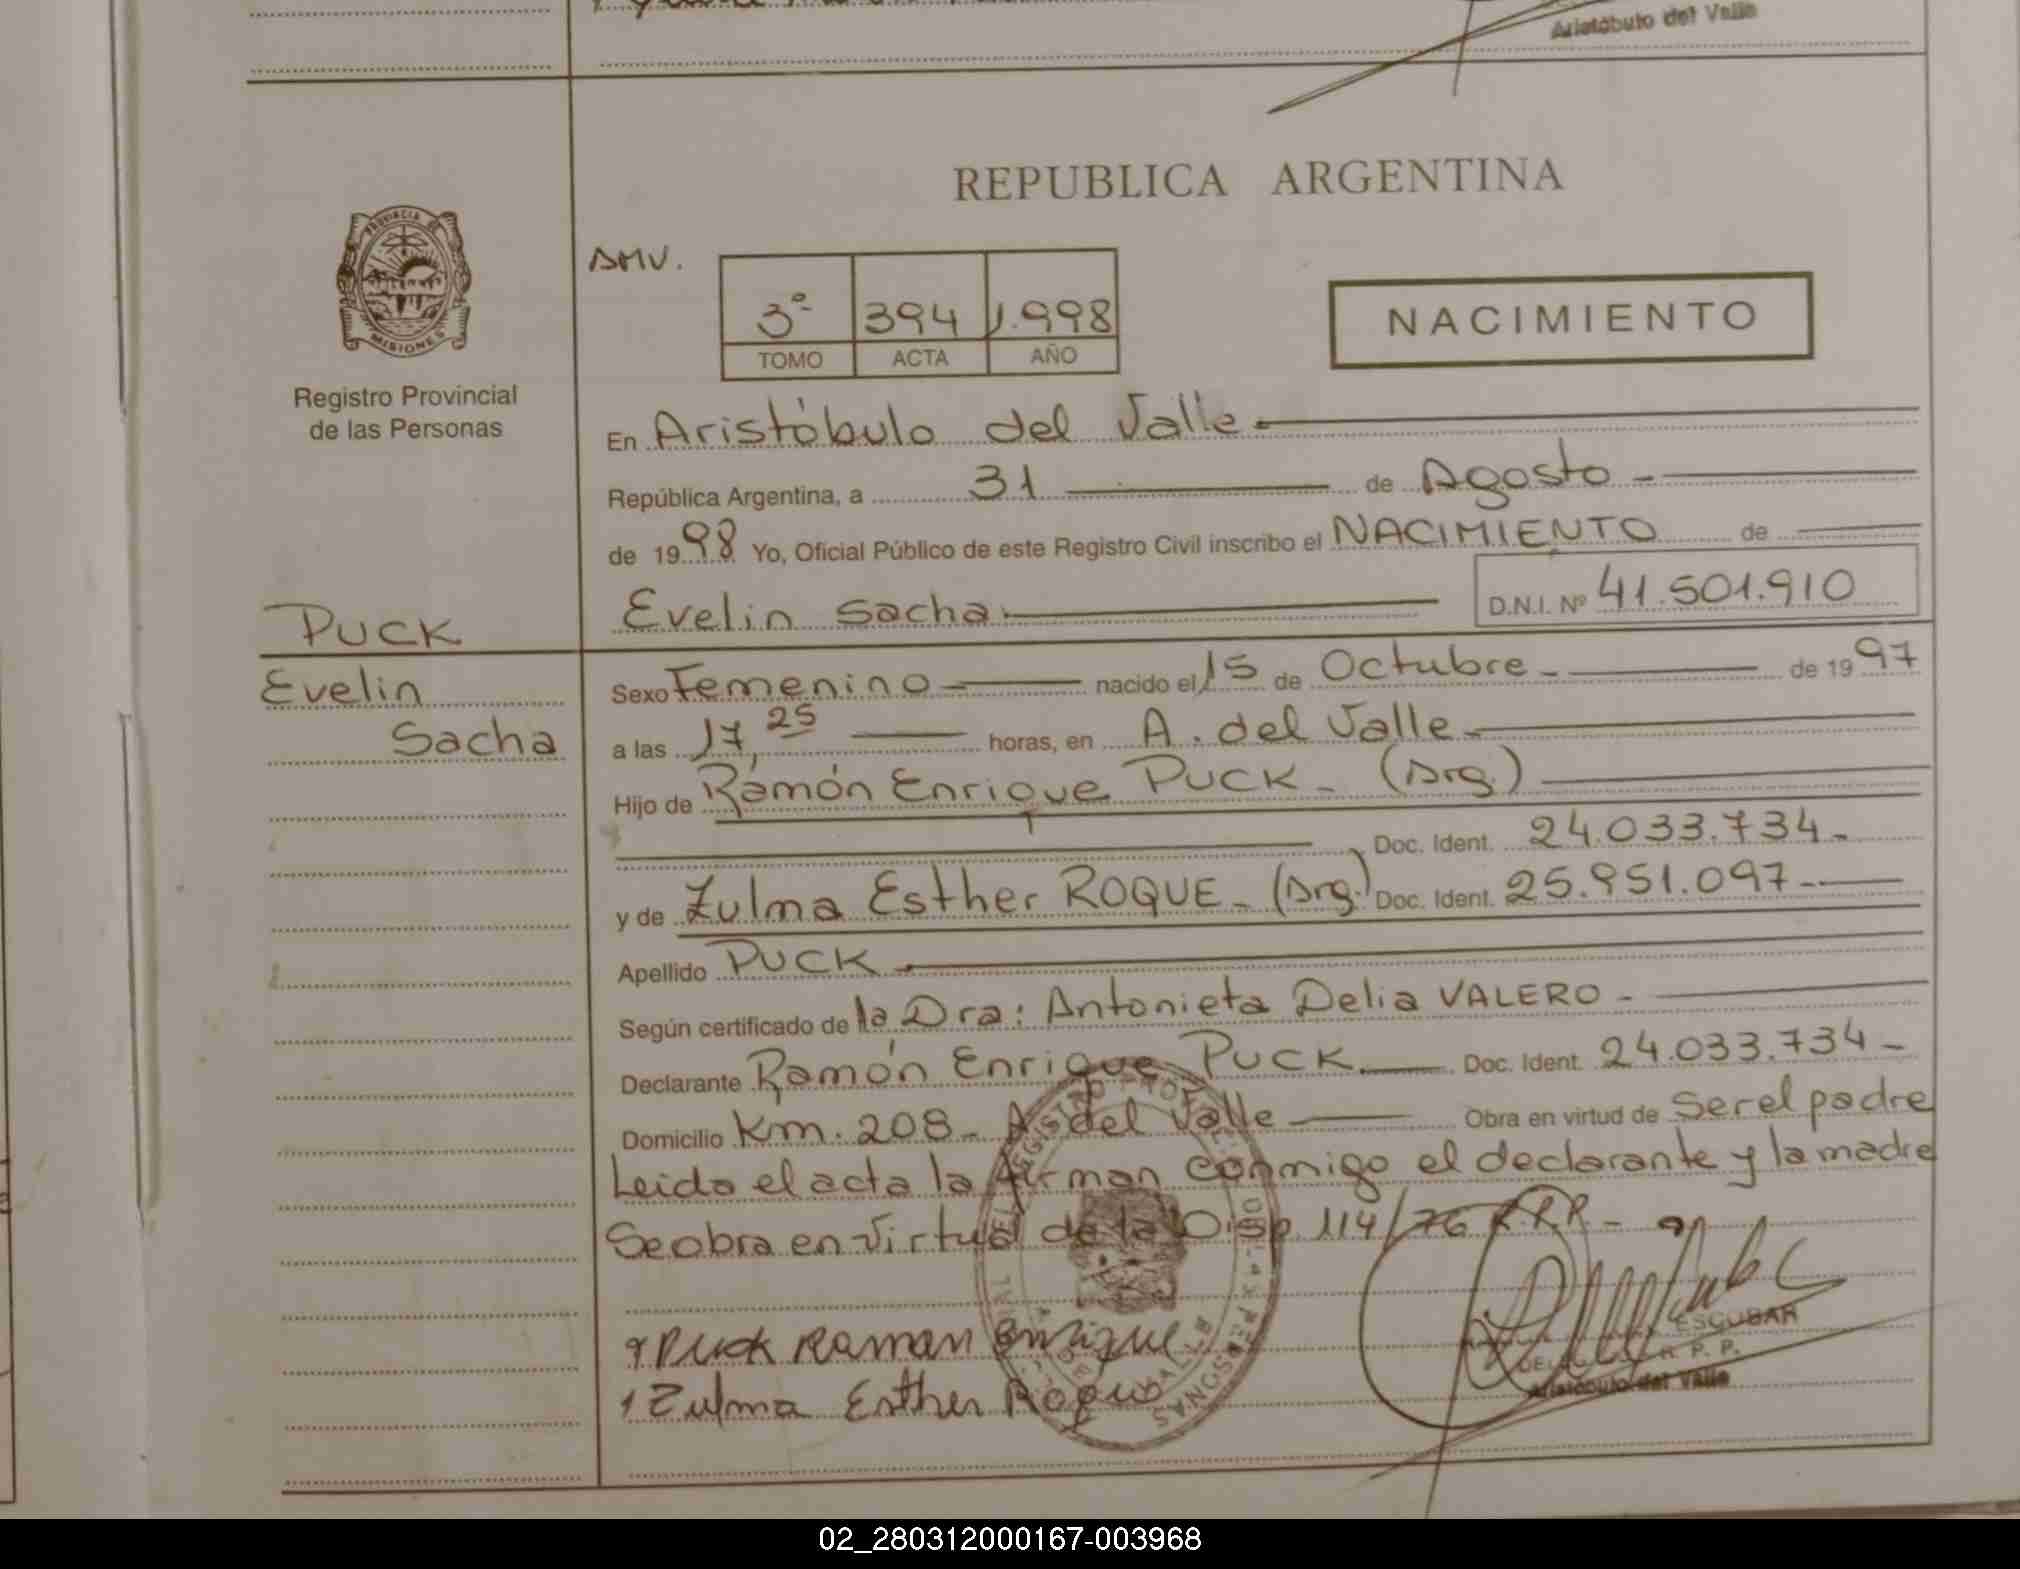 Aristóbulo del Valle
REPUBLICA ARGENTINA
PROVINCIA DE
MISIONES
Registro Provincial
de las Personas
AMV.
3º 394 1.998
TOMO ACTA AÑO
NACIMIENTO
En Aristóbulo del Valle
República Argentina, a 31 de Agosto -
de 1998 Yo, Oficial Público de este Registro Civil inscribo el NACIMIENTO de
Evelin Sacha D.N.I. Nº 41.501.910
PUCK
Evelin
Sacha
Sexo Femenino nacido el 15 de Octubre - de 1997
a las 17,25 horas, en A. del Valle
Hijo de Ramón Enrique PUCK - (Arg.)
Doc. Ident. 24.033.734-
y de Zulma Esther ROQUE - (Arg.) Doc. Ident. 25.951.097-
Apellido PUCK
Según certificado de la Dra: Antonieta Delia VALERO -
Declarante Ramón Enrique PUCK Doc. Ident. 24.033.734-
Domicilio Km. 208 - A. del Valle Obra en virtud de Ser el padre
Leido el acta la firman conmigo el declarante y la madre
Se obra en virtud de la Disp. 114/76 R.P.P -
Puck Raman Enrique
Zulma Esther Roque
ESCUBAR
R. P. P.
Aristóbulo del Valle
02_280312000167-003968